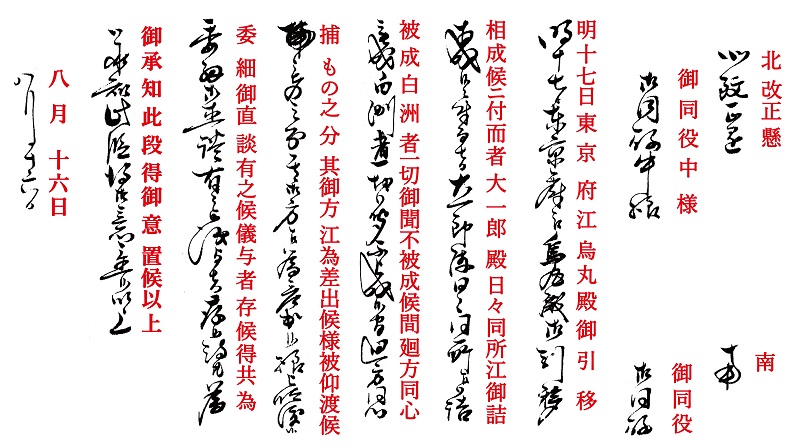 北改正懸
御同役中様
南
御同役
明十七日東京府江烏丸殿御引移
相成候ニ付而者大一郎殿日々同所江御詰
被成白洲者一切御聞不被成候間廻方同心
捕もの之分其御方江為差出候様被仰渡候
委細御直談有之候儀与者存候得共為
御承知此段得御意置候以上
八月十六日